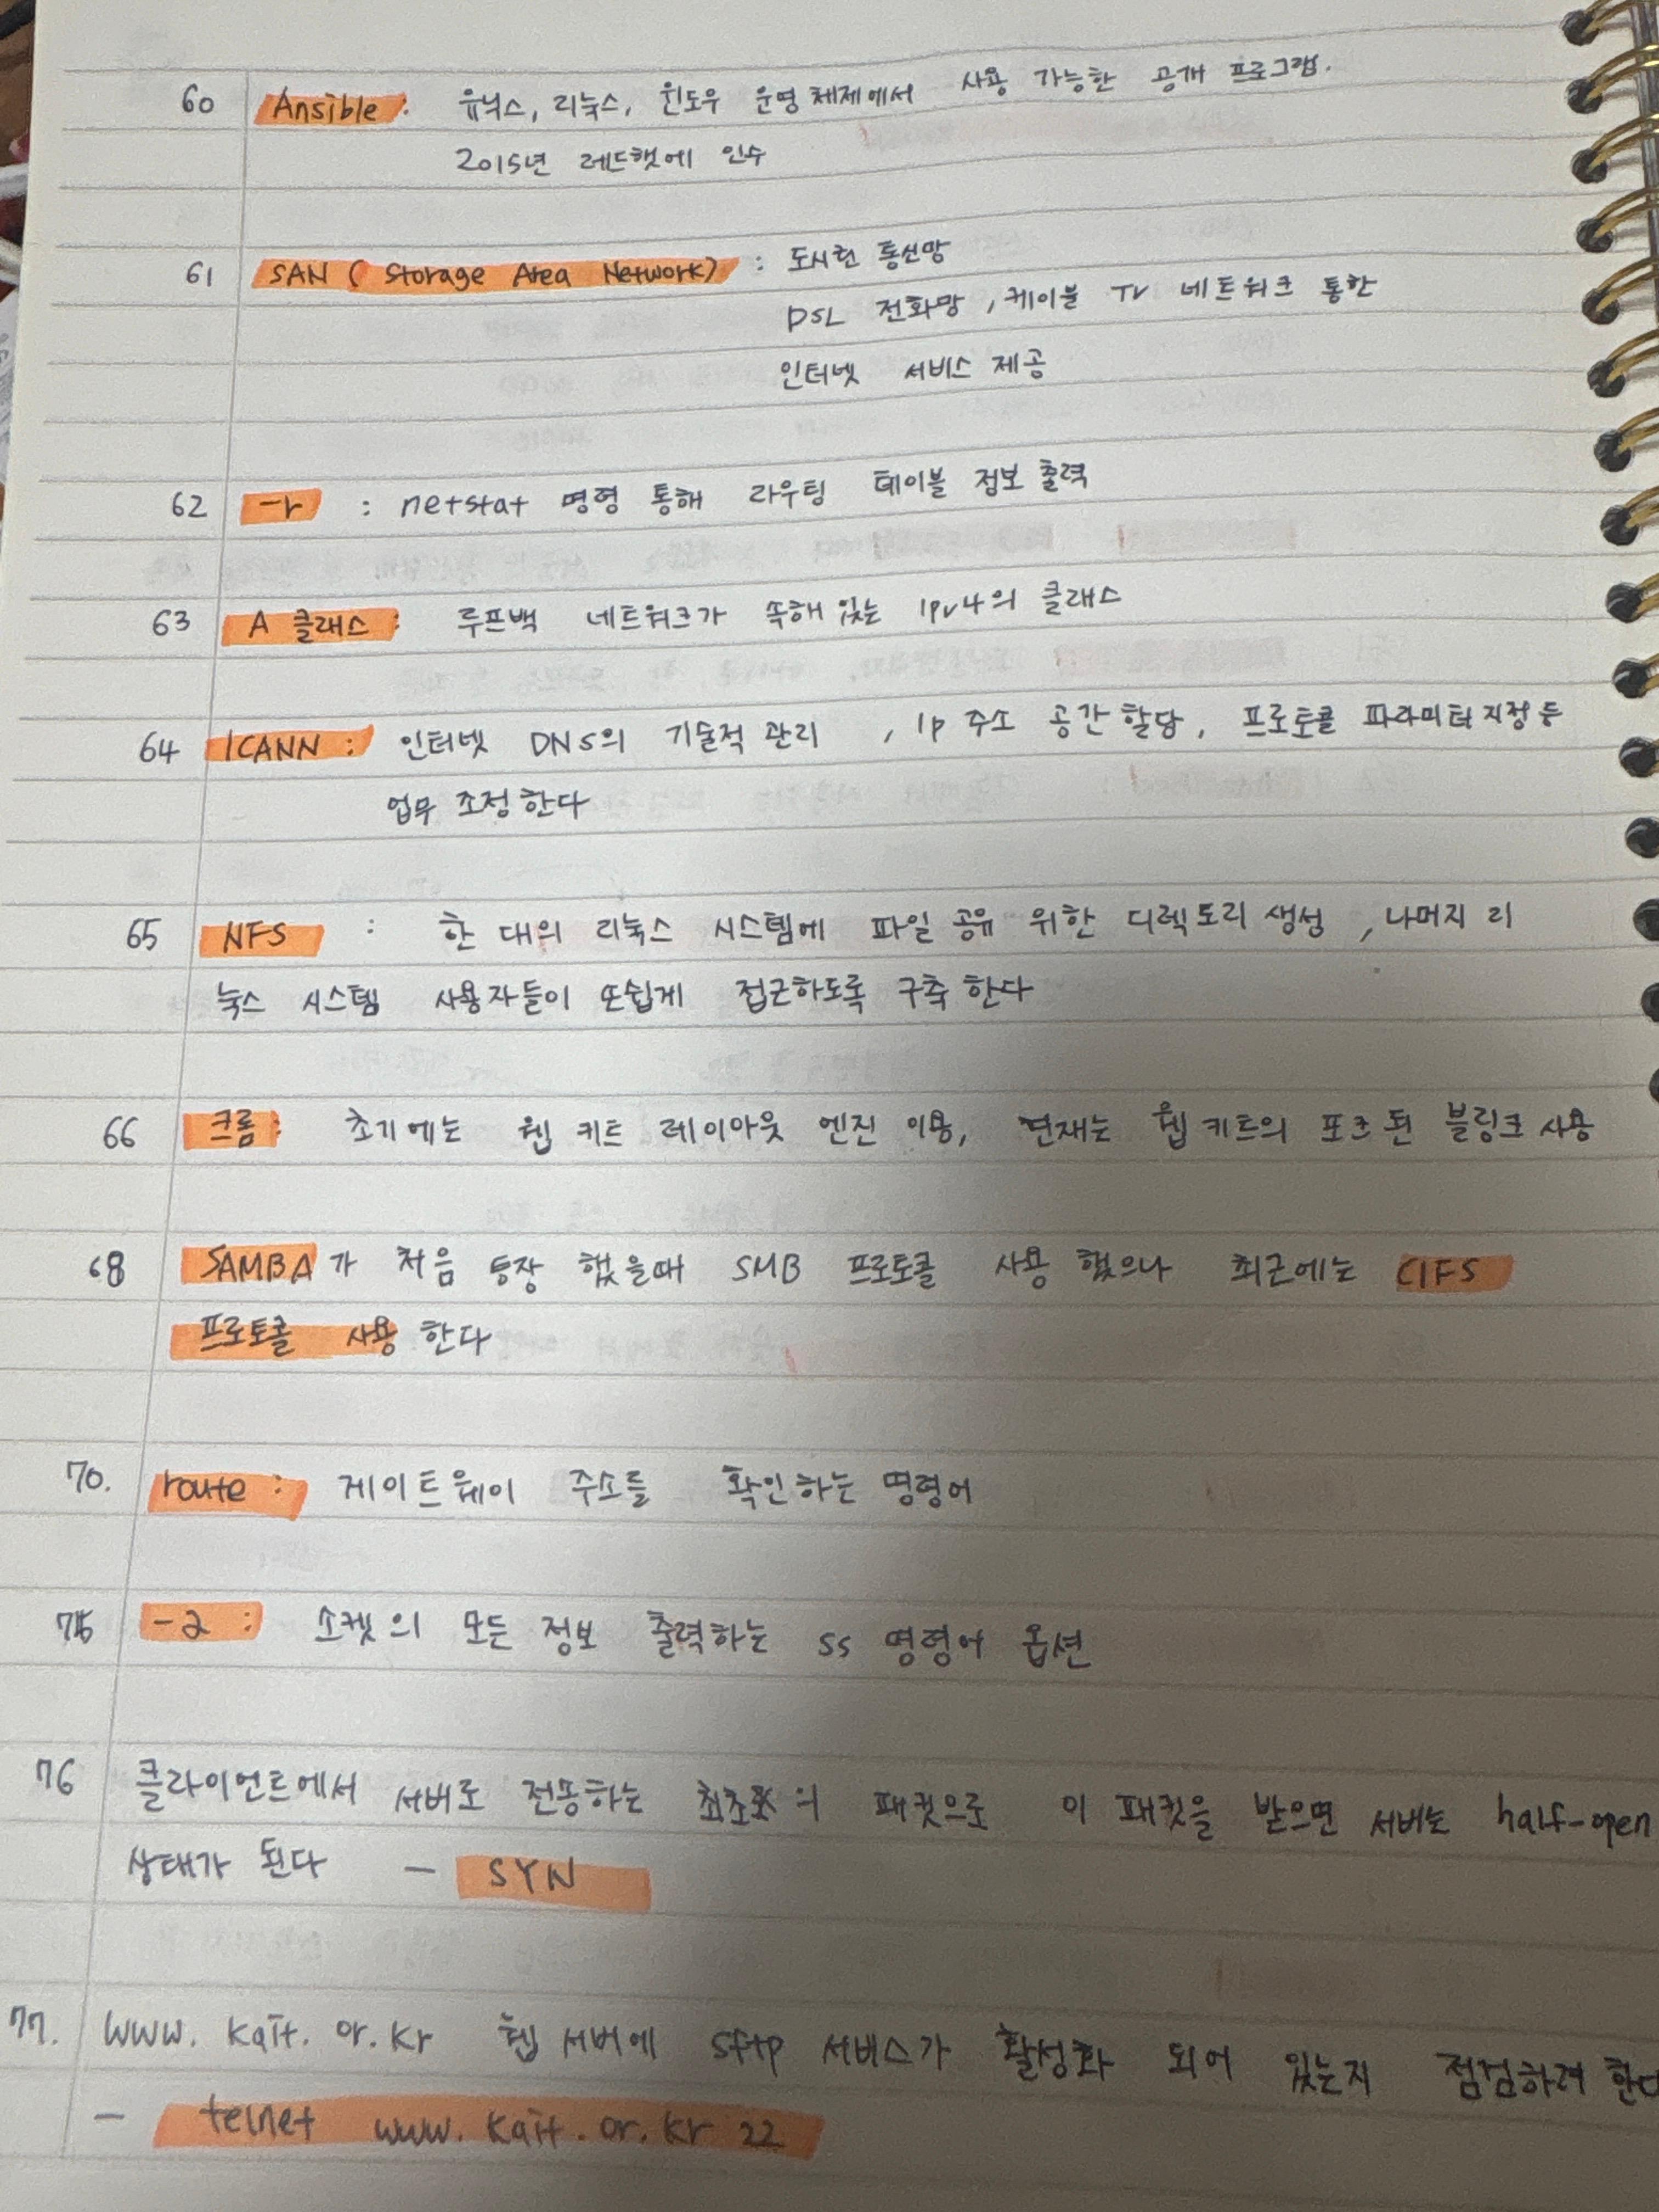 60 Ansible : 유닉스, 리눅스, 윈도우 운영체제에서 사용 가능한 공개 프로그램.
2015년 레드햇에 인수
61 SAN ( Storage Area Network) : 도시권 통신망
DSL 전화망, 케이블 TV 네트워크 통한
인터넷 서비스 제공
62 -r : netstat 명령 통해 라우팅 테이블 정보 출력
63 A 클래스 : 루프백 네트워크가 속해 있는 IPv4의 클래스
64 ICANN : 인터넷 DNS의 기술적 관리 , IP 주소 공간 할당, 프로토콜 파라미터 지정 등
업무 조정 한다
65 NFS : 한 대의 리눅스 시스템에 파일 공유 위한 디렉토리 생성 , 나머지 리
눅스 시스템 사용자들이 손쉽게 접근하도록 구축 한다
66 크롬 : 초기에는 웹 키트 레이아웃 엔진 이용, 현재는 웹 키트의 포크 된 블링크 사용
68 SAMBA가 처음 등장 했을때 SMB 프로토콜 사용 했으나 최근에는 CIFS
프로토콜 사용 한다
70. route : 게이트웨이 주소를 확인하는 명령어
75 -a : 소켓의 모든 정보 출력하는 ss 명령어 옵션
76 클라이언트에서 서버로 전송하는 최초의 패킷으로 이 패킷을 받으면 서버는 half-open
상태가 된다 - SYN
77. www.kait.or.kr 웹 서버에 sftp 서비스가 활성화 되어 있는지 점검하려 한다
- telnet www.kait.or.kr 22